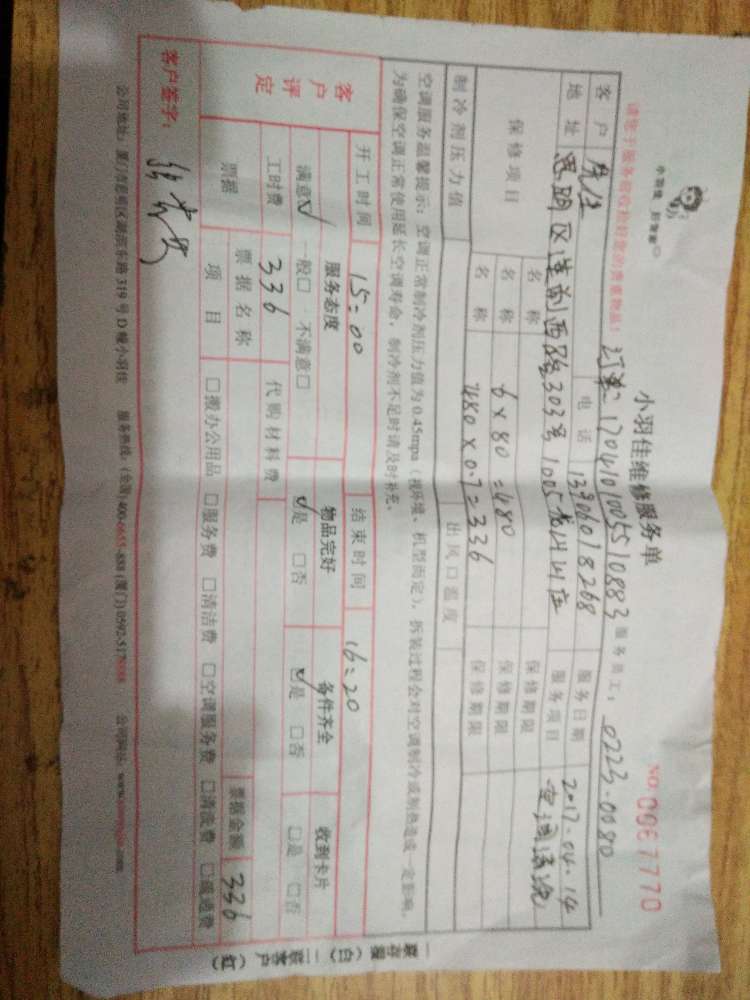 小羽佳维修服务单
NO: 0067770
请您于服务前收拾好您的贵重物品!
订单: 17041010055510883 服务员工: 0223-0080
客户 电话 13306018268 服务日期 2017-04-14
地址 思明区莲前西路303号1005 服务项目 空调清洗
保修项目 名称 保修期限
名称 6×80=480 保修期限
名称 480×0.7=336 保修期限
制冷剂压力值 出风口温度
空调服务温馨提示: 空调正常制冷剂压力值为0.45mpa (视环境、机型而定), 拆装过程会对空调制冷或制热造成一定影响,
为确保空调正常使用延长空调寿命, 制冷剂不足时请及时补充。
开工时间 15:00 结束时间 16:20
客户评定 服务态度 物品完好 备件齐全 收到卡片
满意☑ 一般□ 不满意□ ☑是 □否 ☑是 □否 □是 □否
工时费 336 代购材料费
票据 票据名称 票据金额 336
项目 □搬办公用品 □服务费 □清洁费 □空调服务费 □清洗费
客户签字:
公司地址: 厦门市思明区湖滨东路319号D幢小羽佳 服务热线: (全国)400-6655-888 (厦门)0592- 公司网址: www.
一联存根 (白) 二联客户 (红)